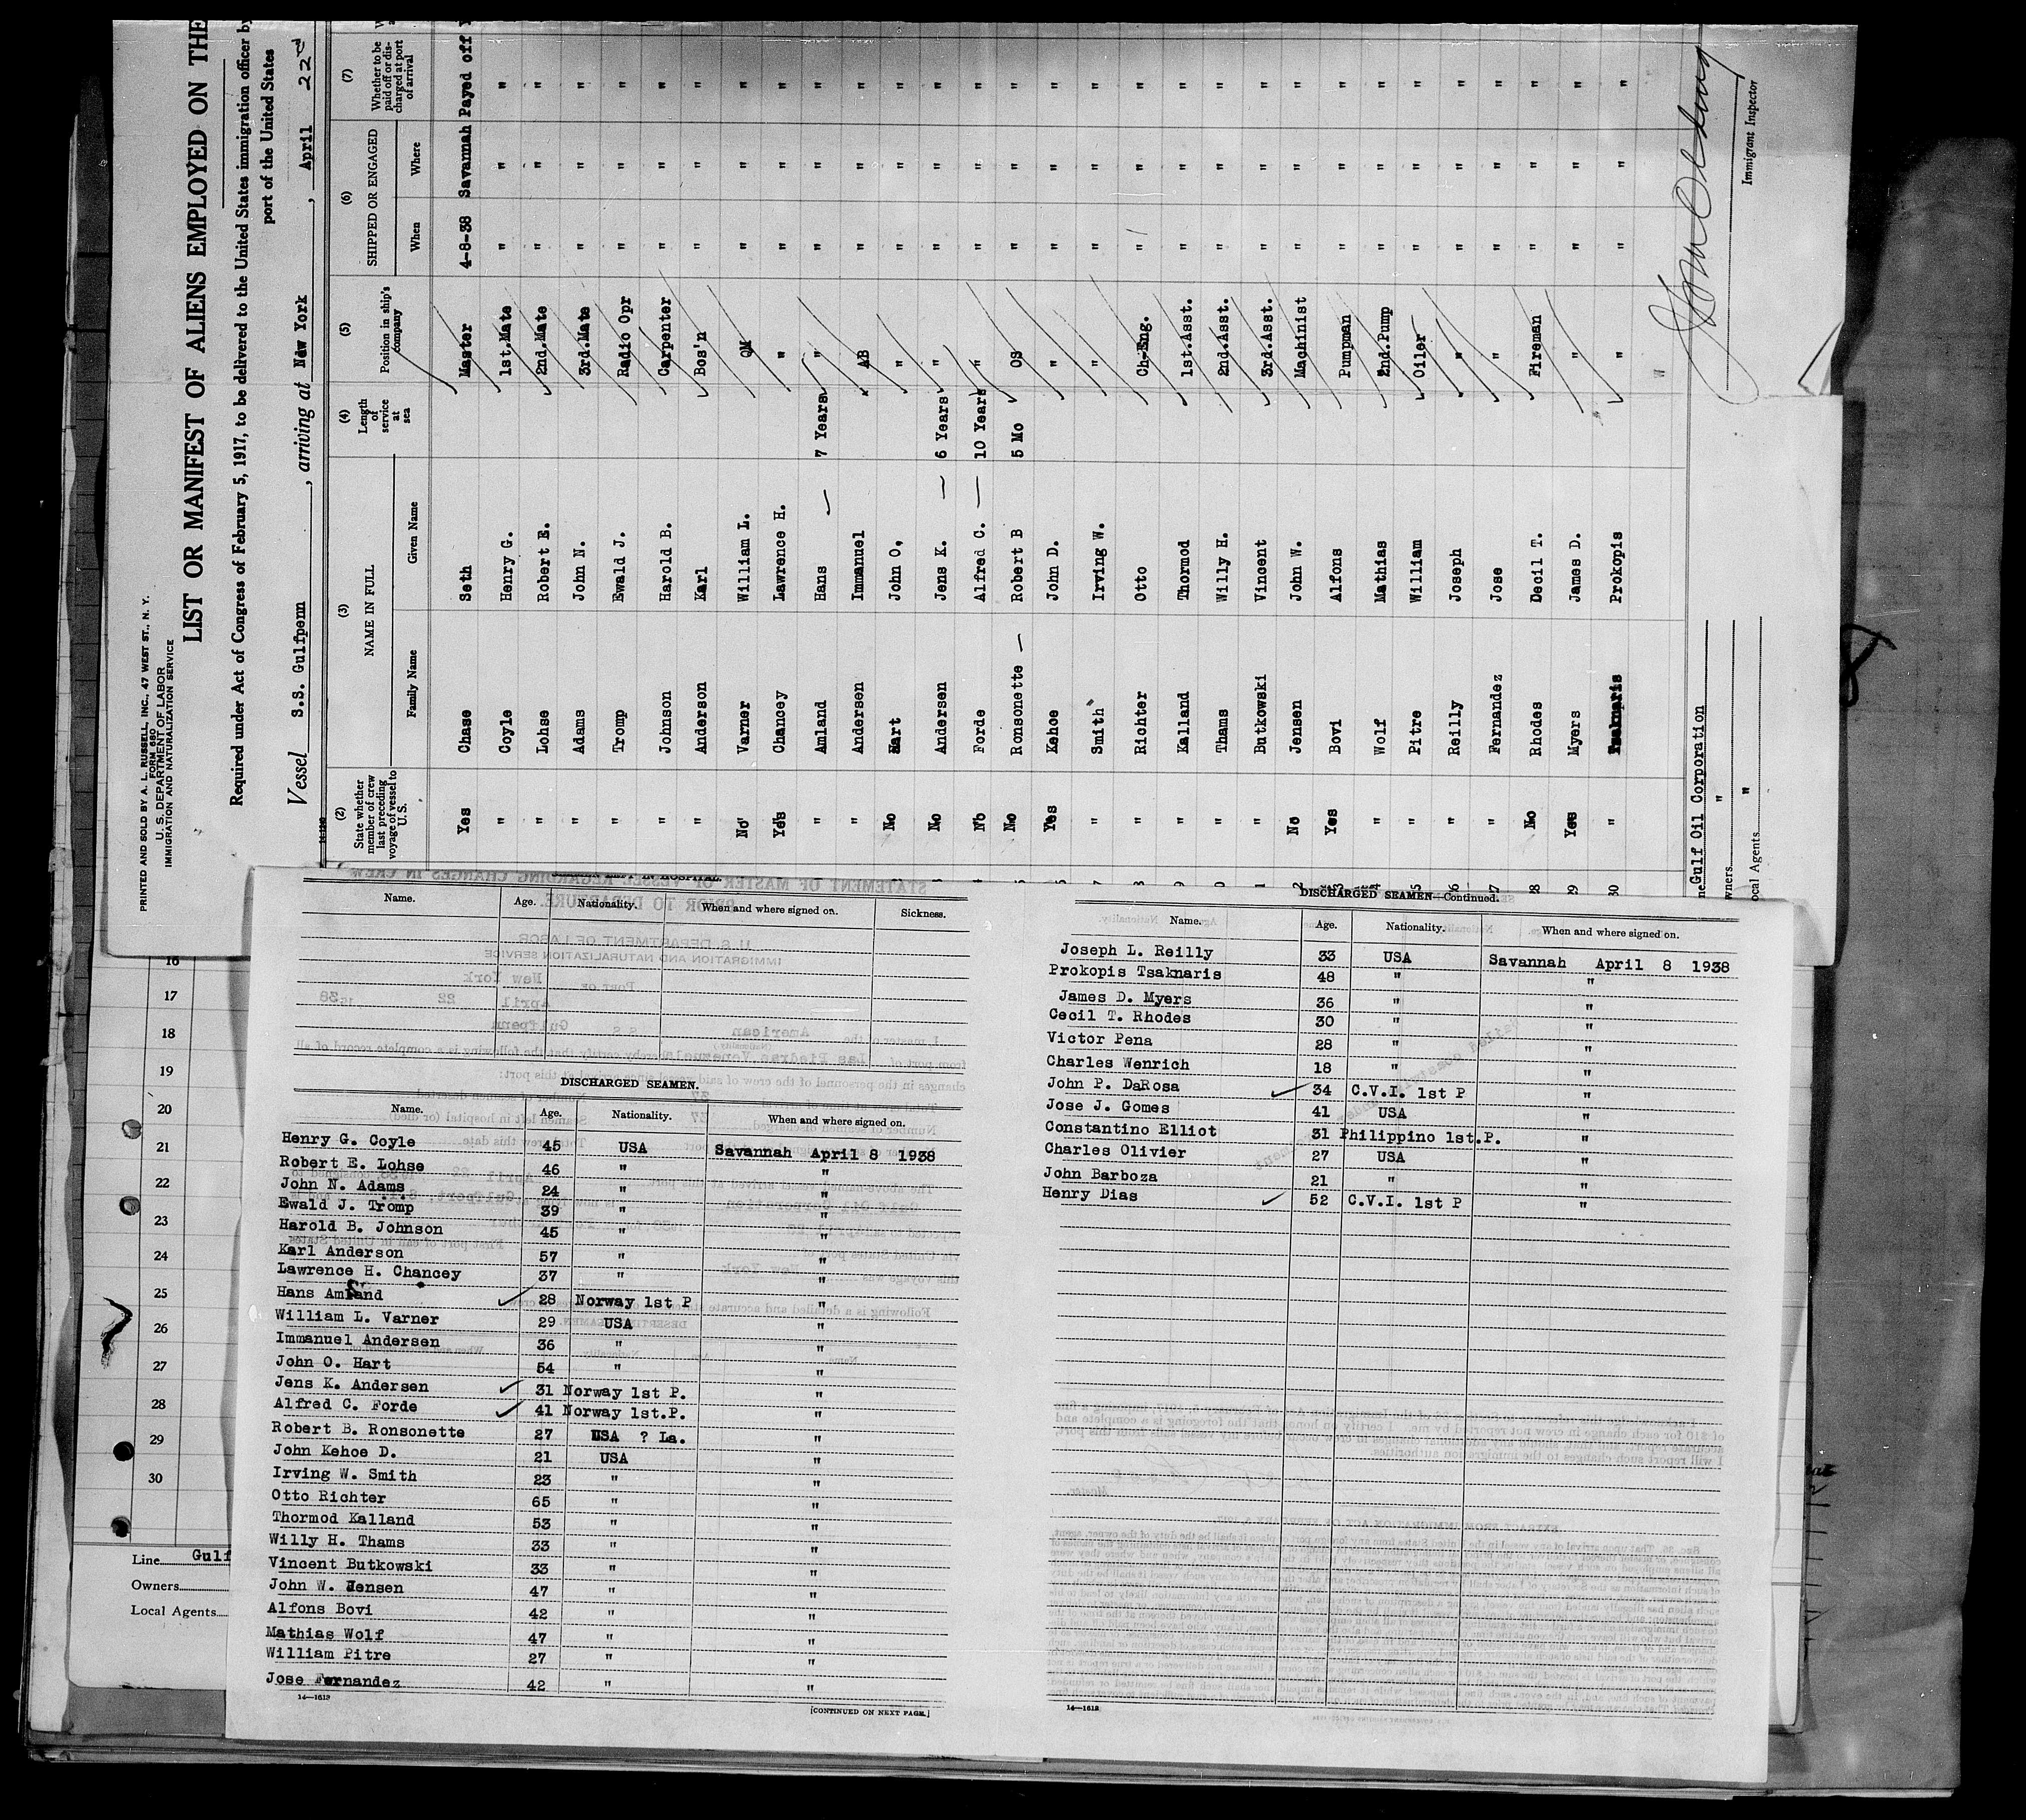 PRINTED AND SOLD BY A. L. RUSSELL, INC., 47 WEST ST., N. Y.
FORM 680
U. S. DEPARTMENT OF LABOR
IMMIGRATION AND NATURALIZATION SERVICE
LIST OR MANIFEST OF ALIENS EMPLOYED ON THE
Required under Act of Congress of February 5, 1917, to be delivered to the United States immigration officer by
port of the United States
Vessel S.S. Gulfpenn, arriving at New York, April 22nd
(2) (3) (4) (5) (6) (7)
State whether member of crew last preceding voyage of vessel to U.S. NAME IN FULL Length of service at sea Position in ship's company SHIPPED OR ENGAGED Whether to be paid off or discharged at port of arrival
Family Name Given Name When Where
Yes Chase Seth Master 4-8-38 Savannah Payed off
" Coyle Henry G. 1st.Mate " " "
" Lohse Robert E. 2nd.Mate " " "
" Adams John N. 3rd.Mate " " "
" Tromp Ewald J. Radio Opr " " "
" Johnson Harold B. Carpenter " " "
" Anderson Karl Bos'n " " "
No Varner William L. QM " " "
Yes Chancey Lawrence H. " " " "
" Amland Hans 7 Years " " " "
" Andersen Immanuel AB " " "
No Hart John O. " " " "
No Andersen Jens K. 6 Years " " " "
No Forde Alfred C. 10 Years " " " "
No Ronsonette Robert B 5 Mo OS " " "
Yes Kehoe John D. " " " "
" Smith Irving W. " " " "
" Richter Otto Ch-Eng. " " "
" Kalland Thormod 1st.Asst. " " "
" Thams Willy H. 2nd.Asst. " " "
" Butkowski Vincent 3rd.Asst. " " "
No Jensen John W. Machinist " " "
Yes Bovi Alfons Pumpman " " "
" Wolf Mathias 2nd.Pump " " "
" Pitre William Oiler " " "
" Reilly Joseph " " " "
" Fernandez Jose " " " "
No Rhodes Decil T. Fireman " " "
Yes Myers James D. " " " "
" Tsaknaris Prokopis " " " "
Gulf Oil Corporation
wners "
ocal Agents "
Immigrant Inspector
16
17
18
19
20
21
22
23
24
25
26
27
28
29
30
Line Gulf
Owners
Local Agents
Name. Age. Nationality. When and where signed on. Sickness.
DISCHARGED SEAMEN.
Name. Age. Nationality. When and where signed on.
Henry G. Coyle 45 USA Savannah April 8 1938
Robert E. Lohse 46 " "
John N. Adams 24 " "
Ewald J. Tromp 39 " "
Harold B. Johnson 45 " "
Karl Anderson 57 " "
Lawrence H. Chancey 37 " "
Hans Amland 28 Norway 1st P "
William L. Varner 29 USA "
Immanuel Andersen 36 " "
John O. Hart 54 " "
Jens K. Andersen 31 Norway 1st P. "
Alfred C. Forde 41 Norway 1st.P. "
Robert B. Ronsonette 27 USA ? La. "
John Kehoe D. 21 USA "
Irving W. Smith 23 " "
Otto Richter 65 " "
Thormod Kalland 53 " "
Willy H. Thams 33 " "
Vincent Butkowski 33 " "
John W. Jensen 47 " "
Alfons Bovi 42 " "
Mathias Wolf 47 " "
William Pitre 27 " "
Jose Fernandez 42 " "
14—1613
[CONTINUED ON NEXT PAGE.]
DISCHARGED SEAMEN—Continued.
Name. Age. Nationality. When and where signed on.
Joseph L. Reilly 33 USA Savannah April 8 1938
Prokopis Tsaknaris 48 " "
James D. Myers 36 " "
Cecil T. Rhodes 30 " "
Victor Pena 28 " "
Charles Wenrich 18 " "
John P. DaRosa 34 C.V.I. 1st P "
Jose J. Gomes 41 USA "
Constantino Elliot 31 Philippino 1st.P. "
Charles Olivier 27 USA "
John Barboza 21 " "
Henry Dias 52 C.V.I. 1st P "
14—1613